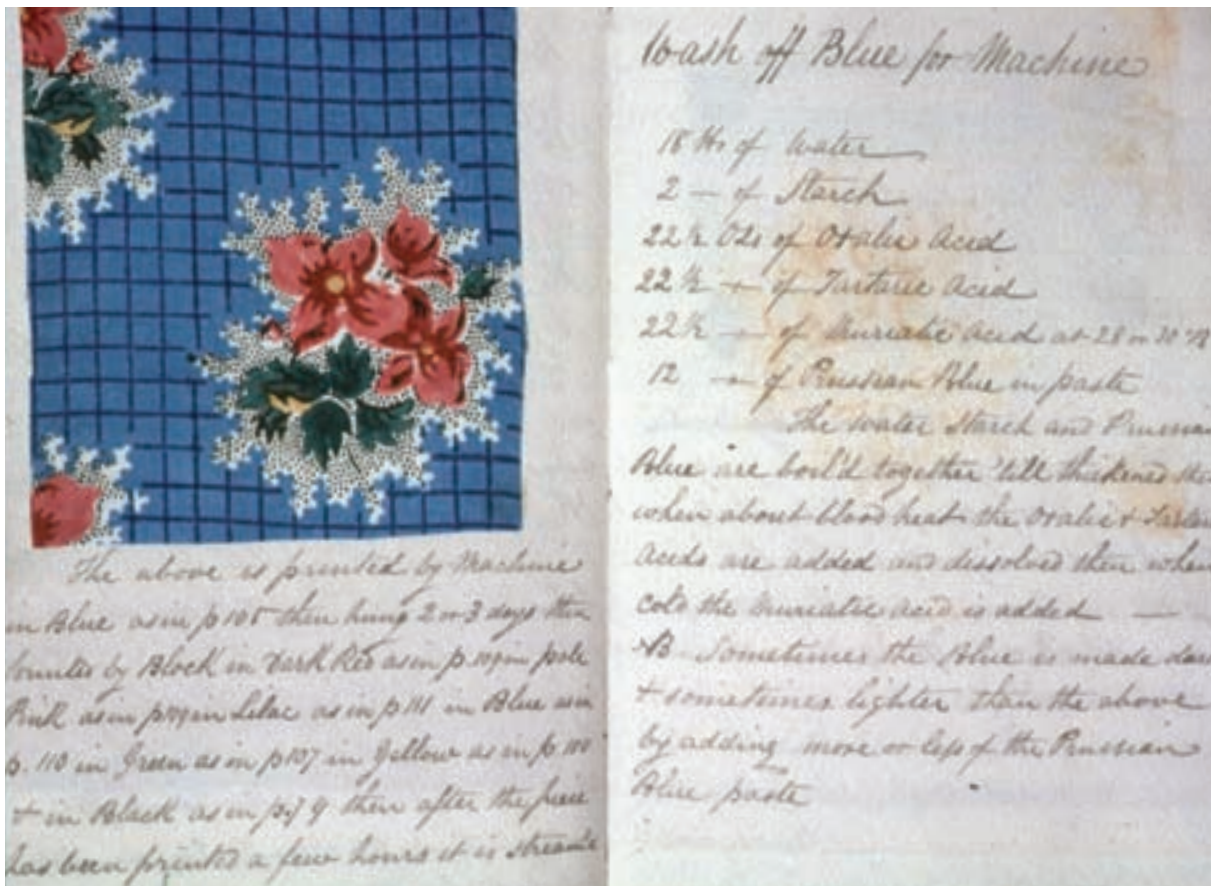 The above is printed by Machine
in Blue as in p 105 then hung 2 or 3 days then
by Block in Dark Red as in p. in pale
Pink as in p in Lilac as in p 111 in Blue as in
p. 110 in Green as in p 107 in Yellow as in p 100
+ in Black as in p. then after the piece
has been printed a few hours it is
Wash off Blue for Machine
18 lbs of Water
2 — of Starch
22 ½ Ozs of Oxalic Acid
22 ½ — of Tartaric Acid
22 ½ — of Muriatic Acid at 28 or 30 TW
12 — of Prussian Blue in paste
The water Starch and Prussian
Blue are boil'd together 'till thickened
when about blood heat the Oxalic + Tartaric
Acids are added and dissolved then when
cold the Muriatic Acid is added —
NB Sometimes the Blue is made
+ sometimes lighter than the above
by adding more or less of the Prussian
Blue paste